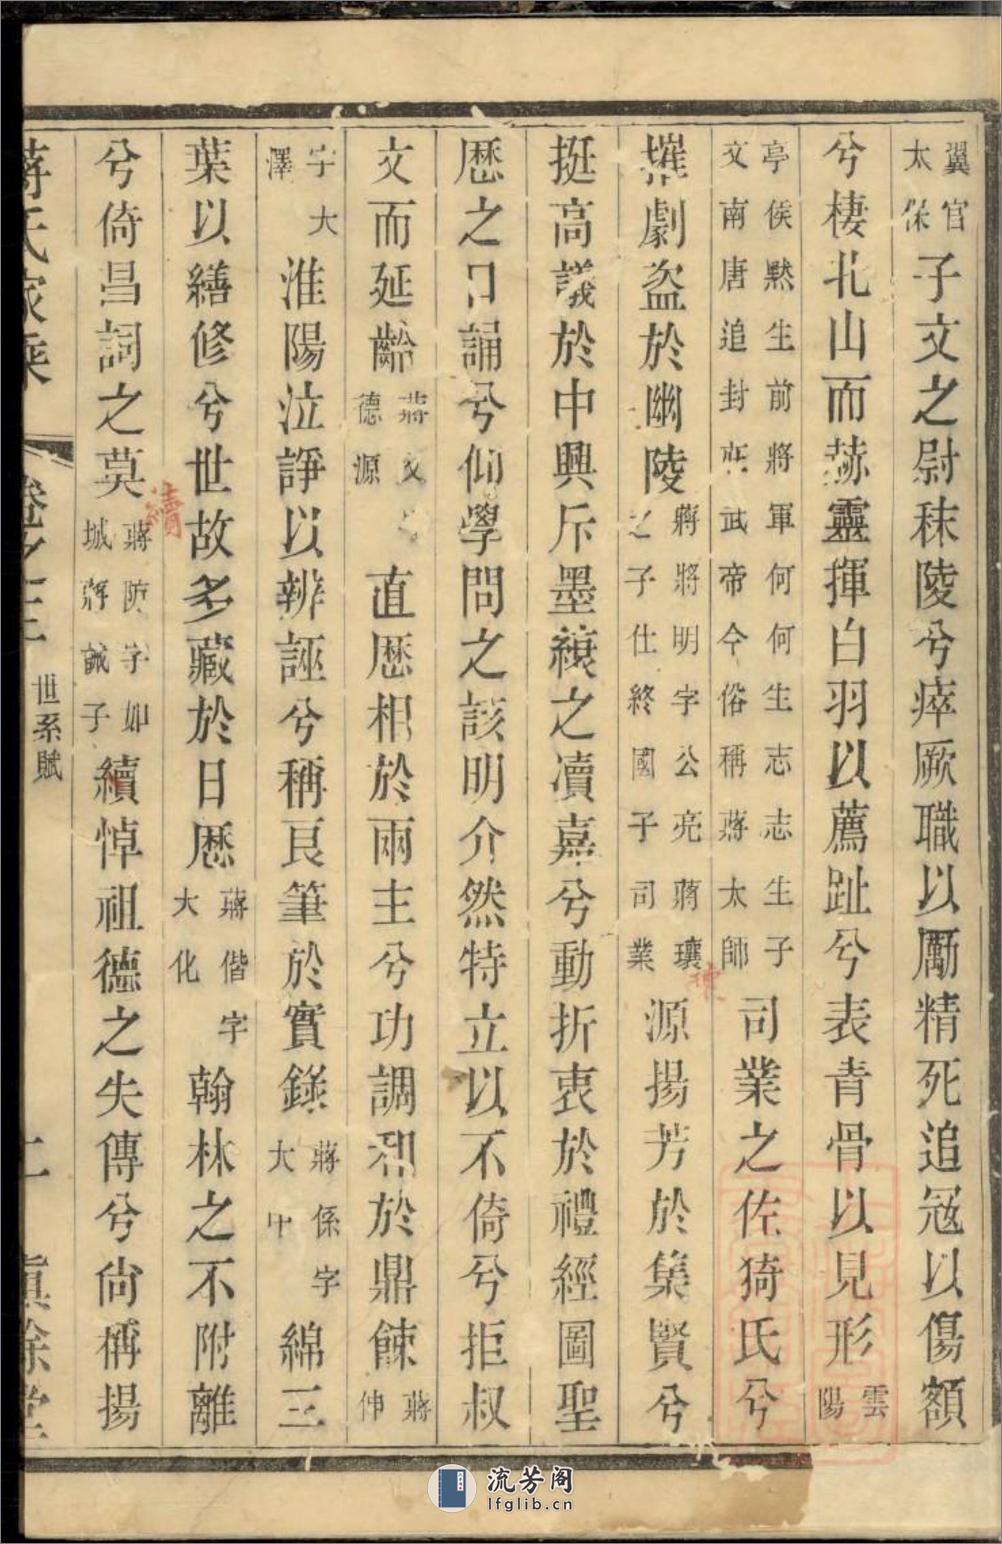 翼官太保子文之尉秣陵兮瘁厥職以厲精死追冦以傷額
兮棲北山而赫靈揮白羽以薦趾兮表青骨以見形雲陽
亭侯黙生前將軍何何生志志生子文南唐追封莊武帝今俗稱蔣太師司業之佐猗氏兮
摧劇盜於幽陵蔣將明字公亮蔣瓖之子仕終國子司業源揚芳於集賢兮
挺高議於中興斥墨縗之凟嘉兮動折衷於禮經圖聖
歴之口誦兮仰學問之該明介然特立以不倚兮拒叔
文而延齡蔣乂德源直歴相於兩主兮功調和於鼎餗蔣伸
字大澤淮陽泣諍以辨誣兮稱良筆於實錄蔣係字大中綿三
葉以繕修兮世故多藏於日歴蔣偕字大化翰林之不附離
兮倚昌詞之莫續蔣防字如城蔣誠子續悼祖德之失傳兮尙稱揚
蔣氏家乘 卷之三 世系賦 二 真除堂
流芳阁
lfglib.cn